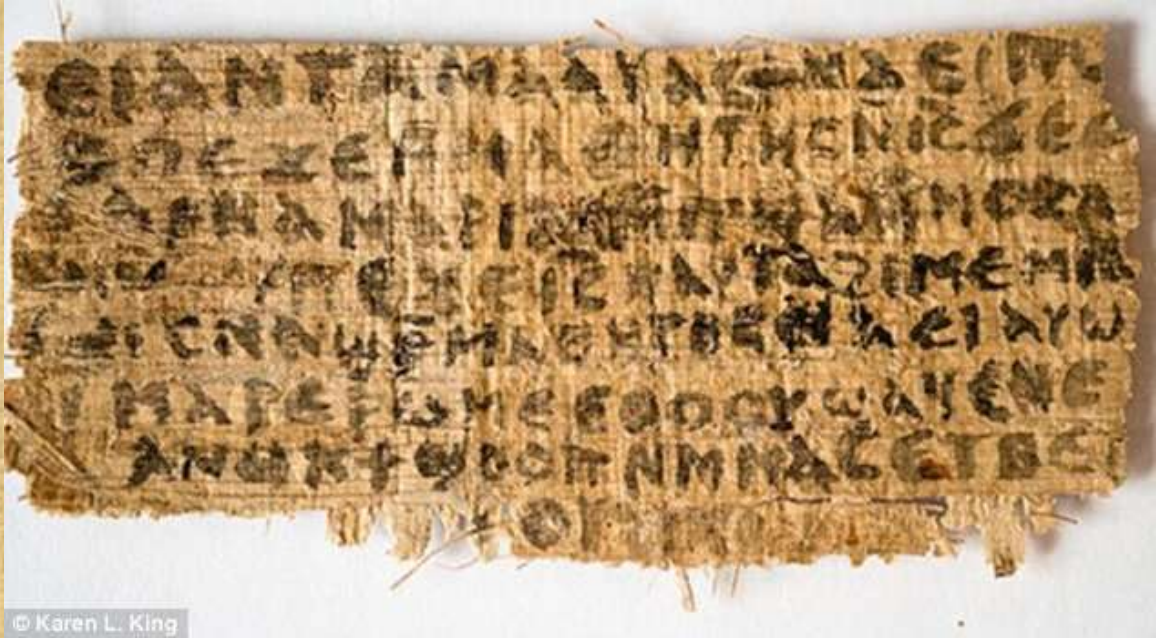 ⲉⲓ ⲁⲛ ⲧⲁⲙⲁⲁⲩ ⲁⲥϯ ⲛⲁⲉⲓ ⲡ
ⲡⲉϫⲉ ⲙⲙⲁⲑⲏⲧⲏⲥ ⲛⲓⲥ ϫⲉ ⲥ
ⲁⲣⲛⲁ ⲙⲁⲣⲓⲁⲙ ⲙⲡϣⲁ ⲙⲙⲟⲥ ⲁ
ⲡⲉϫⲉ ⲓⲥ ⲛⲁⲩ ⲧⲁϩⲓⲙⲉ ⲙⲛ
ⲥⲛⲁϣⲣⲙⲁⲑⲏⲧⲏⲥ ⲛⲁⲉⲓ ⲁⲩⲱ
ⲓ ⲙⲁⲣⲉⲣⲱⲙⲉ ⲉⲑⲟⲟⲩ ϣⲁϥⲉ ⲛⲉ
ⲁⲛⲟⲕ ϯϣⲟⲟⲡ ⲛⲙⲙⲁⲥ ⲉⲧⲃⲉ
© Karen L. King